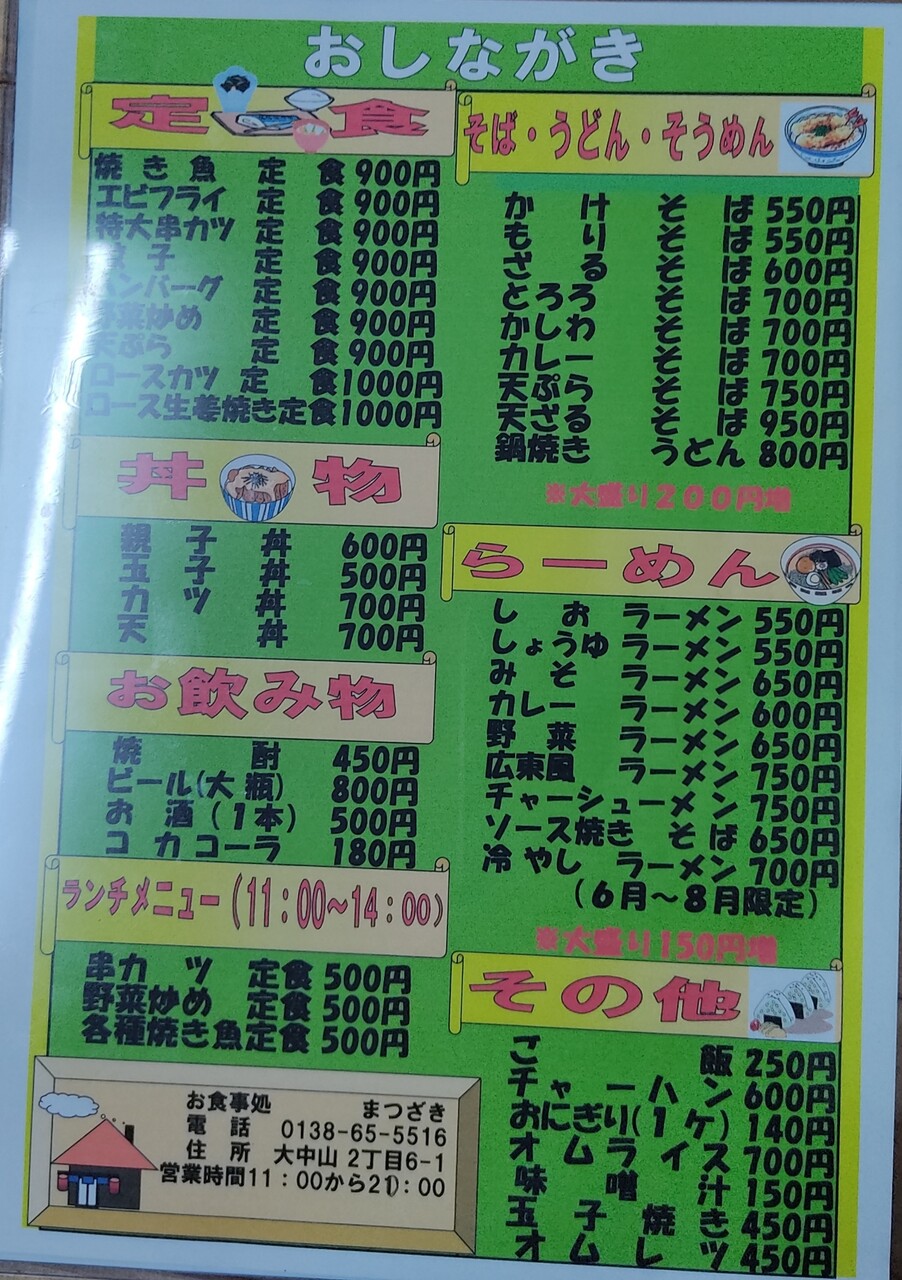 おしながき
定食
焼き魚定食 900円
エビフライ定食 900円
特大串カツ定食 900円
子定食 900円
ハンバーグ定食 900円
野菜炒め定食 900円
天ぷら定食 900円
ロースカツ定食 1000円
ロース生姜焼き定食 1000円
丼物
親子丼 600円
玉子丼 500円
カツ丼 700円
天丼 700円
お飲み物
焼酎 450円
ビール(大瓶) 800円
お酒(1本) 500円
コカコーラ 180円
ランチメニュー(11:00~14:00)
串カツ定食 500円
野菜炒め定食 500円
各種焼き魚定食 500円
お食事処 まつざき
電話 0138-65-5516
住所 大中山 2丁目6-1
営業時間11:00から20:00
そば・うどん・そうめん
かけそば 550円
もりそば 550円
ざるそば 600円
とろろそば 700円
かしわそば 700円
カレーそば 700円
天ぷらそば 750円
天ざるそば 950円
鍋焼きうどん 800円
※大盛り200円増
らーめん
しおラーメン 550円
しょうゆラーメン 550円
みそラーメン 650円
カレーラーメン 600円
野菜ラーメン 650円
広東風ラーメン 750円
チャーシューメン 750円
ソース焼きそば 650円
冷やしラーメン 700円
(6月~8月限定)
※大盛り150円増
その他
ご飯 250円
チャーハン 600円
おにぎり(1ケ) 140円
オムライス 700円
味噌汁 150円
玉子焼き 450円
オムレツ 450円